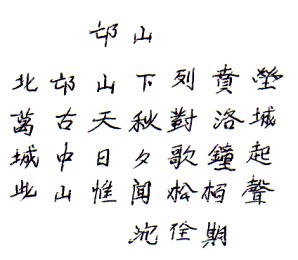 邙山
北邙山下列賁塋
萬古天秋對洛城
城中日夕歌鐘起
此山惟闻松柏聲
沈佺期